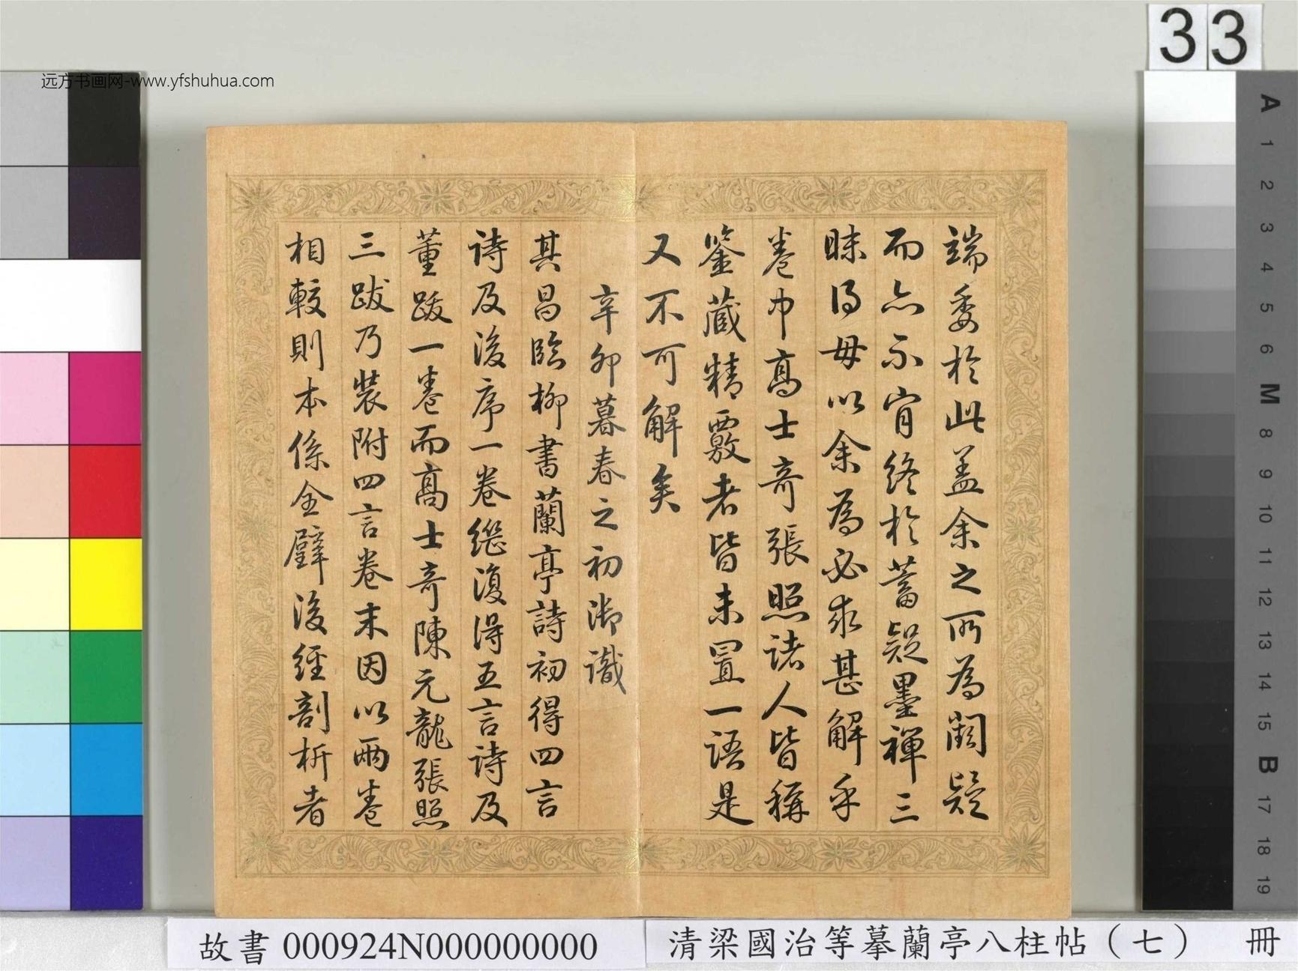 远方书画网-www.yfshuhua.com
33
端委於此盖余之所為闕疑
而亦不肯終於蓄疑墨禅三
昧得毋以余為必求甚解乎
卷中高士奇張照諸人皆稱
鉴藏精覈者皆未置一語是
又不可解矣
辛卯暮春之初御識
其昌臨柳書蘭亭詩初得四言
詩及後序一卷继復得五言詩及
董跋一卷而高士奇陳元龍張照
三跋乃装附四言卷末因以兩卷
相較則本係全璧後經剖析者
A 1 2 3 4 5 6 M 8 9 10 11 12 13 14 15 B 17 18 19
故書 000924N000000000
清梁國治等摹蘭亭八柱帖（七） 冊